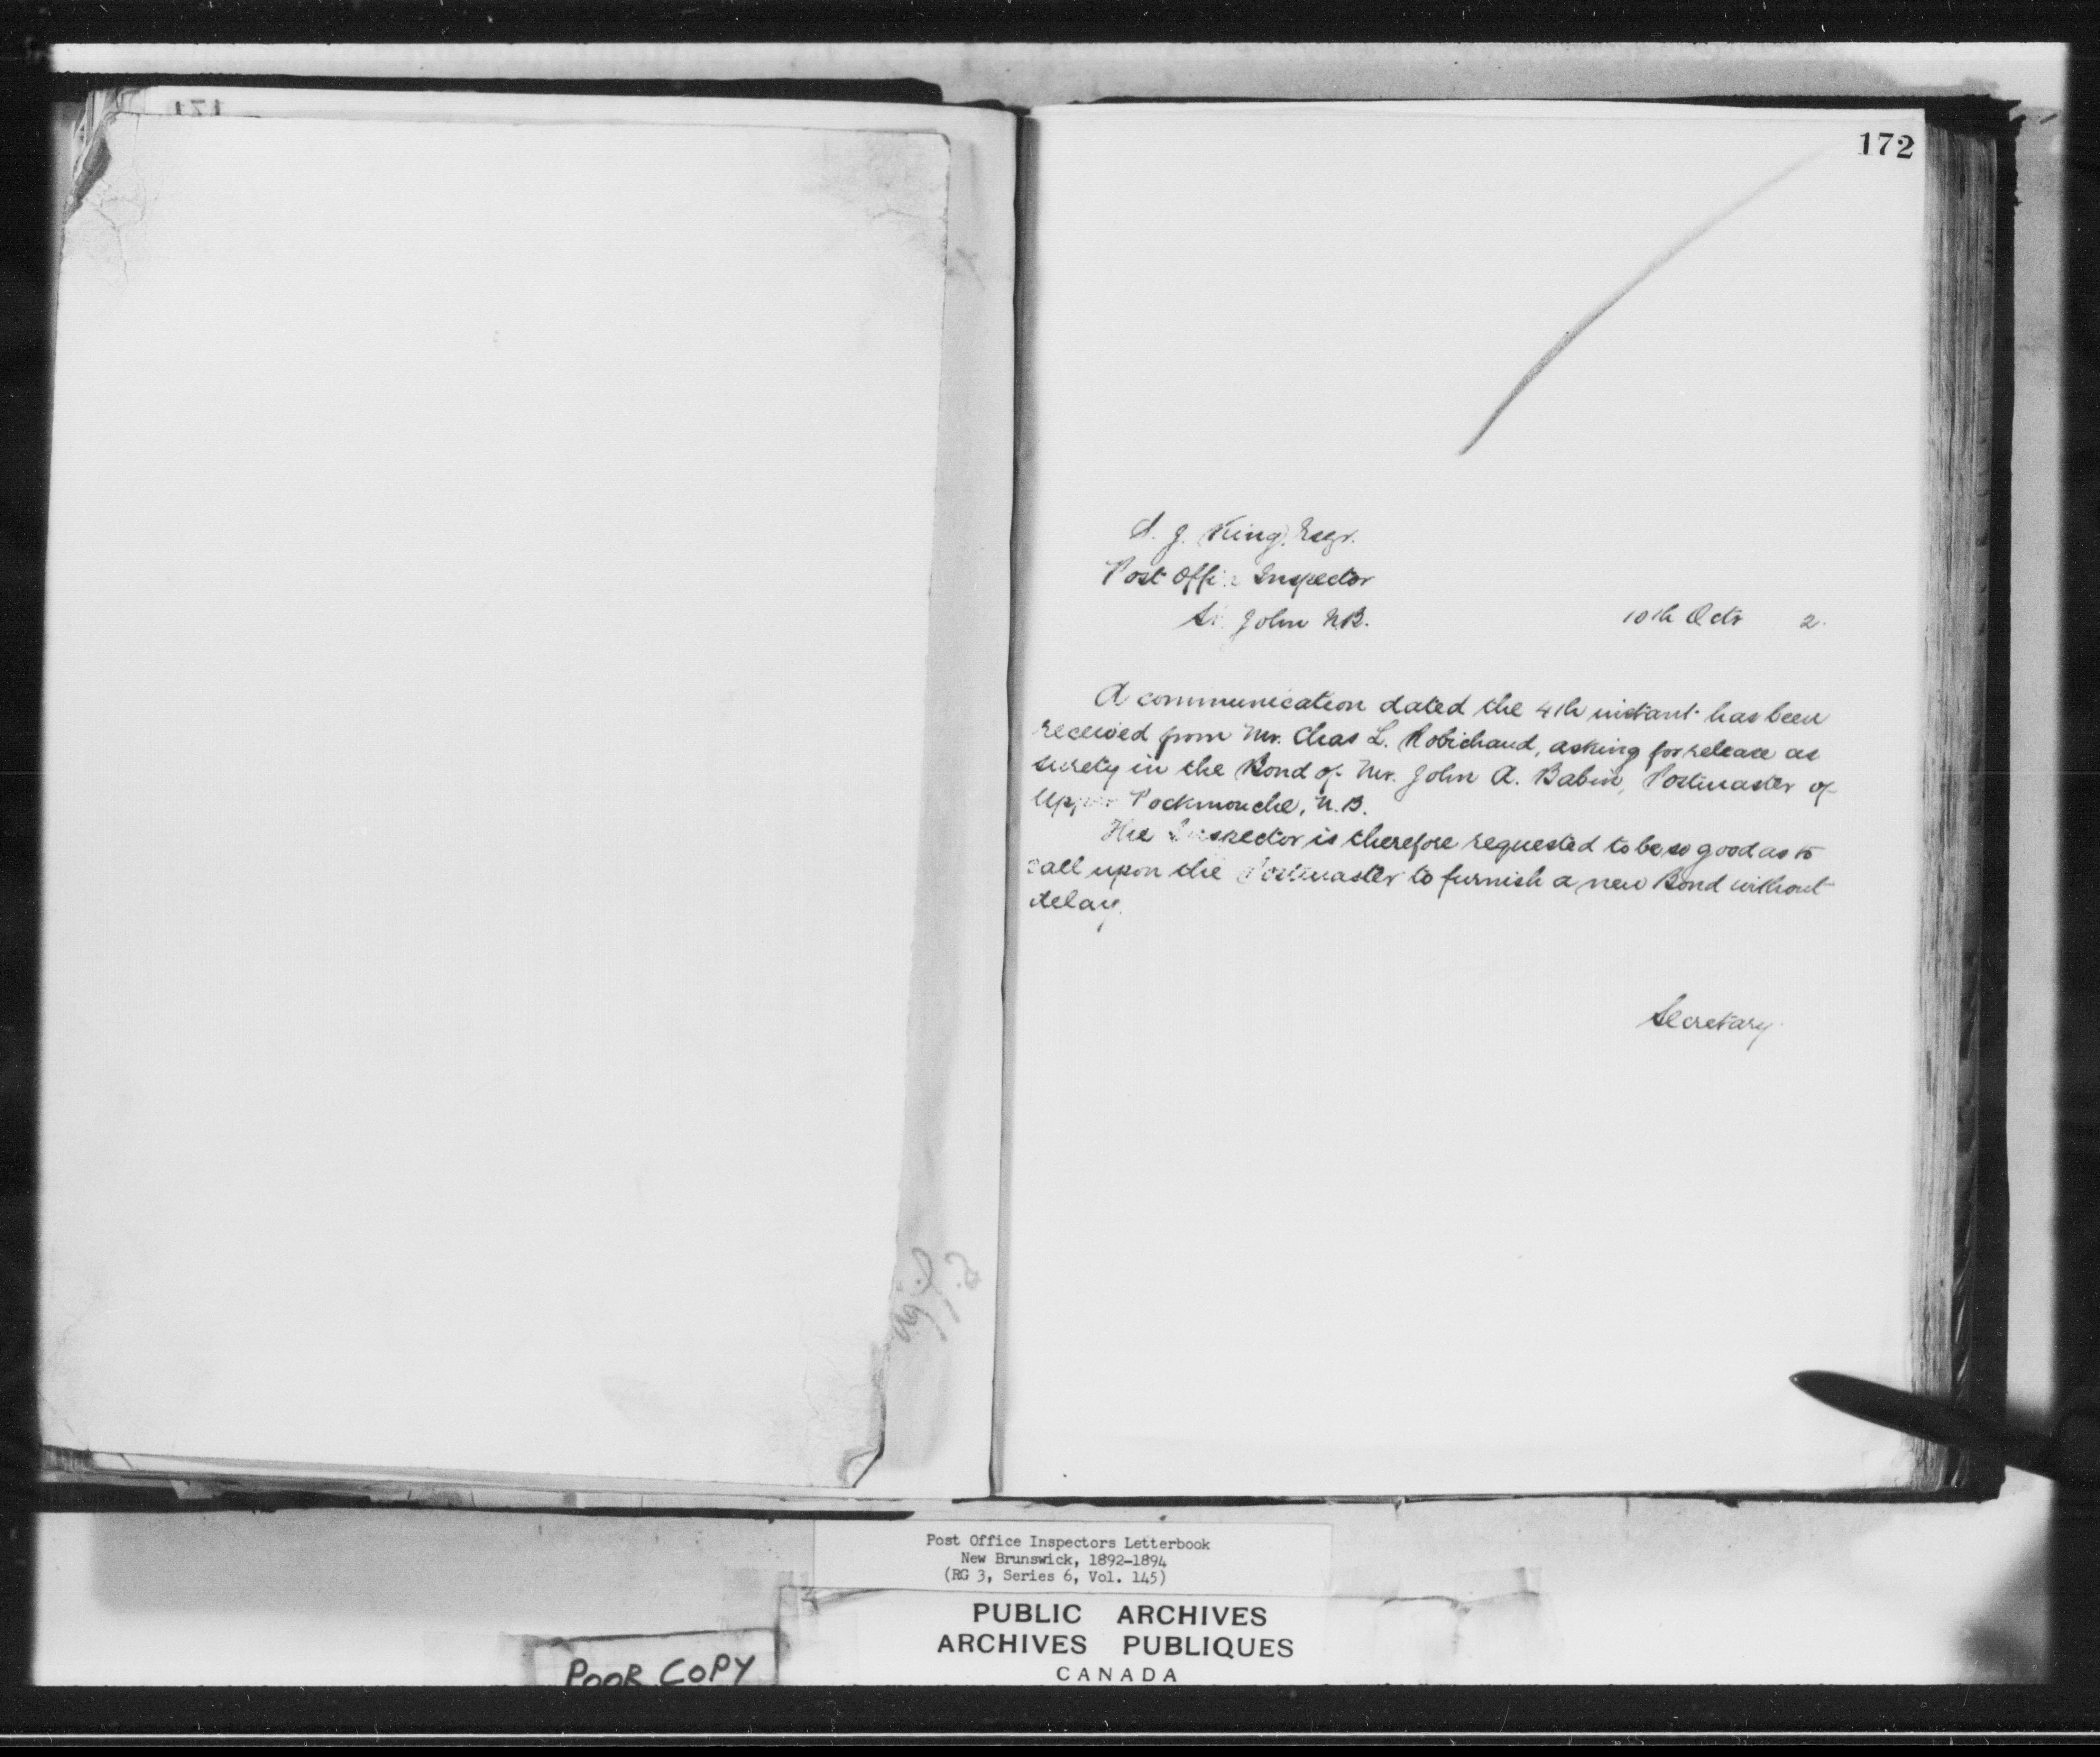 171
172
S. J. King, Esqr.
Post Office Inspector
St. John N.B.
10th Octr 2.
A communication dated the 4th instant has been
received from Mr. Chas L. Robichaud, asking for release as
surety in the Bond of Mr. John A. Babin, Postmaster of
Upper Pockmouche, N.B.
The Inspector is therefore requested to be so good as to
call upon the Postmaster to furnish a new Bond without
delay.
Secretary.
Post Office Inspectors Letterbook
New Brunswick, 1892-1894
(RG 3, Series 6, Vol. 145)
PUBLIC ARCHIVES
ARCHIVES PUBLIQUES
CANADA
POOR COPY